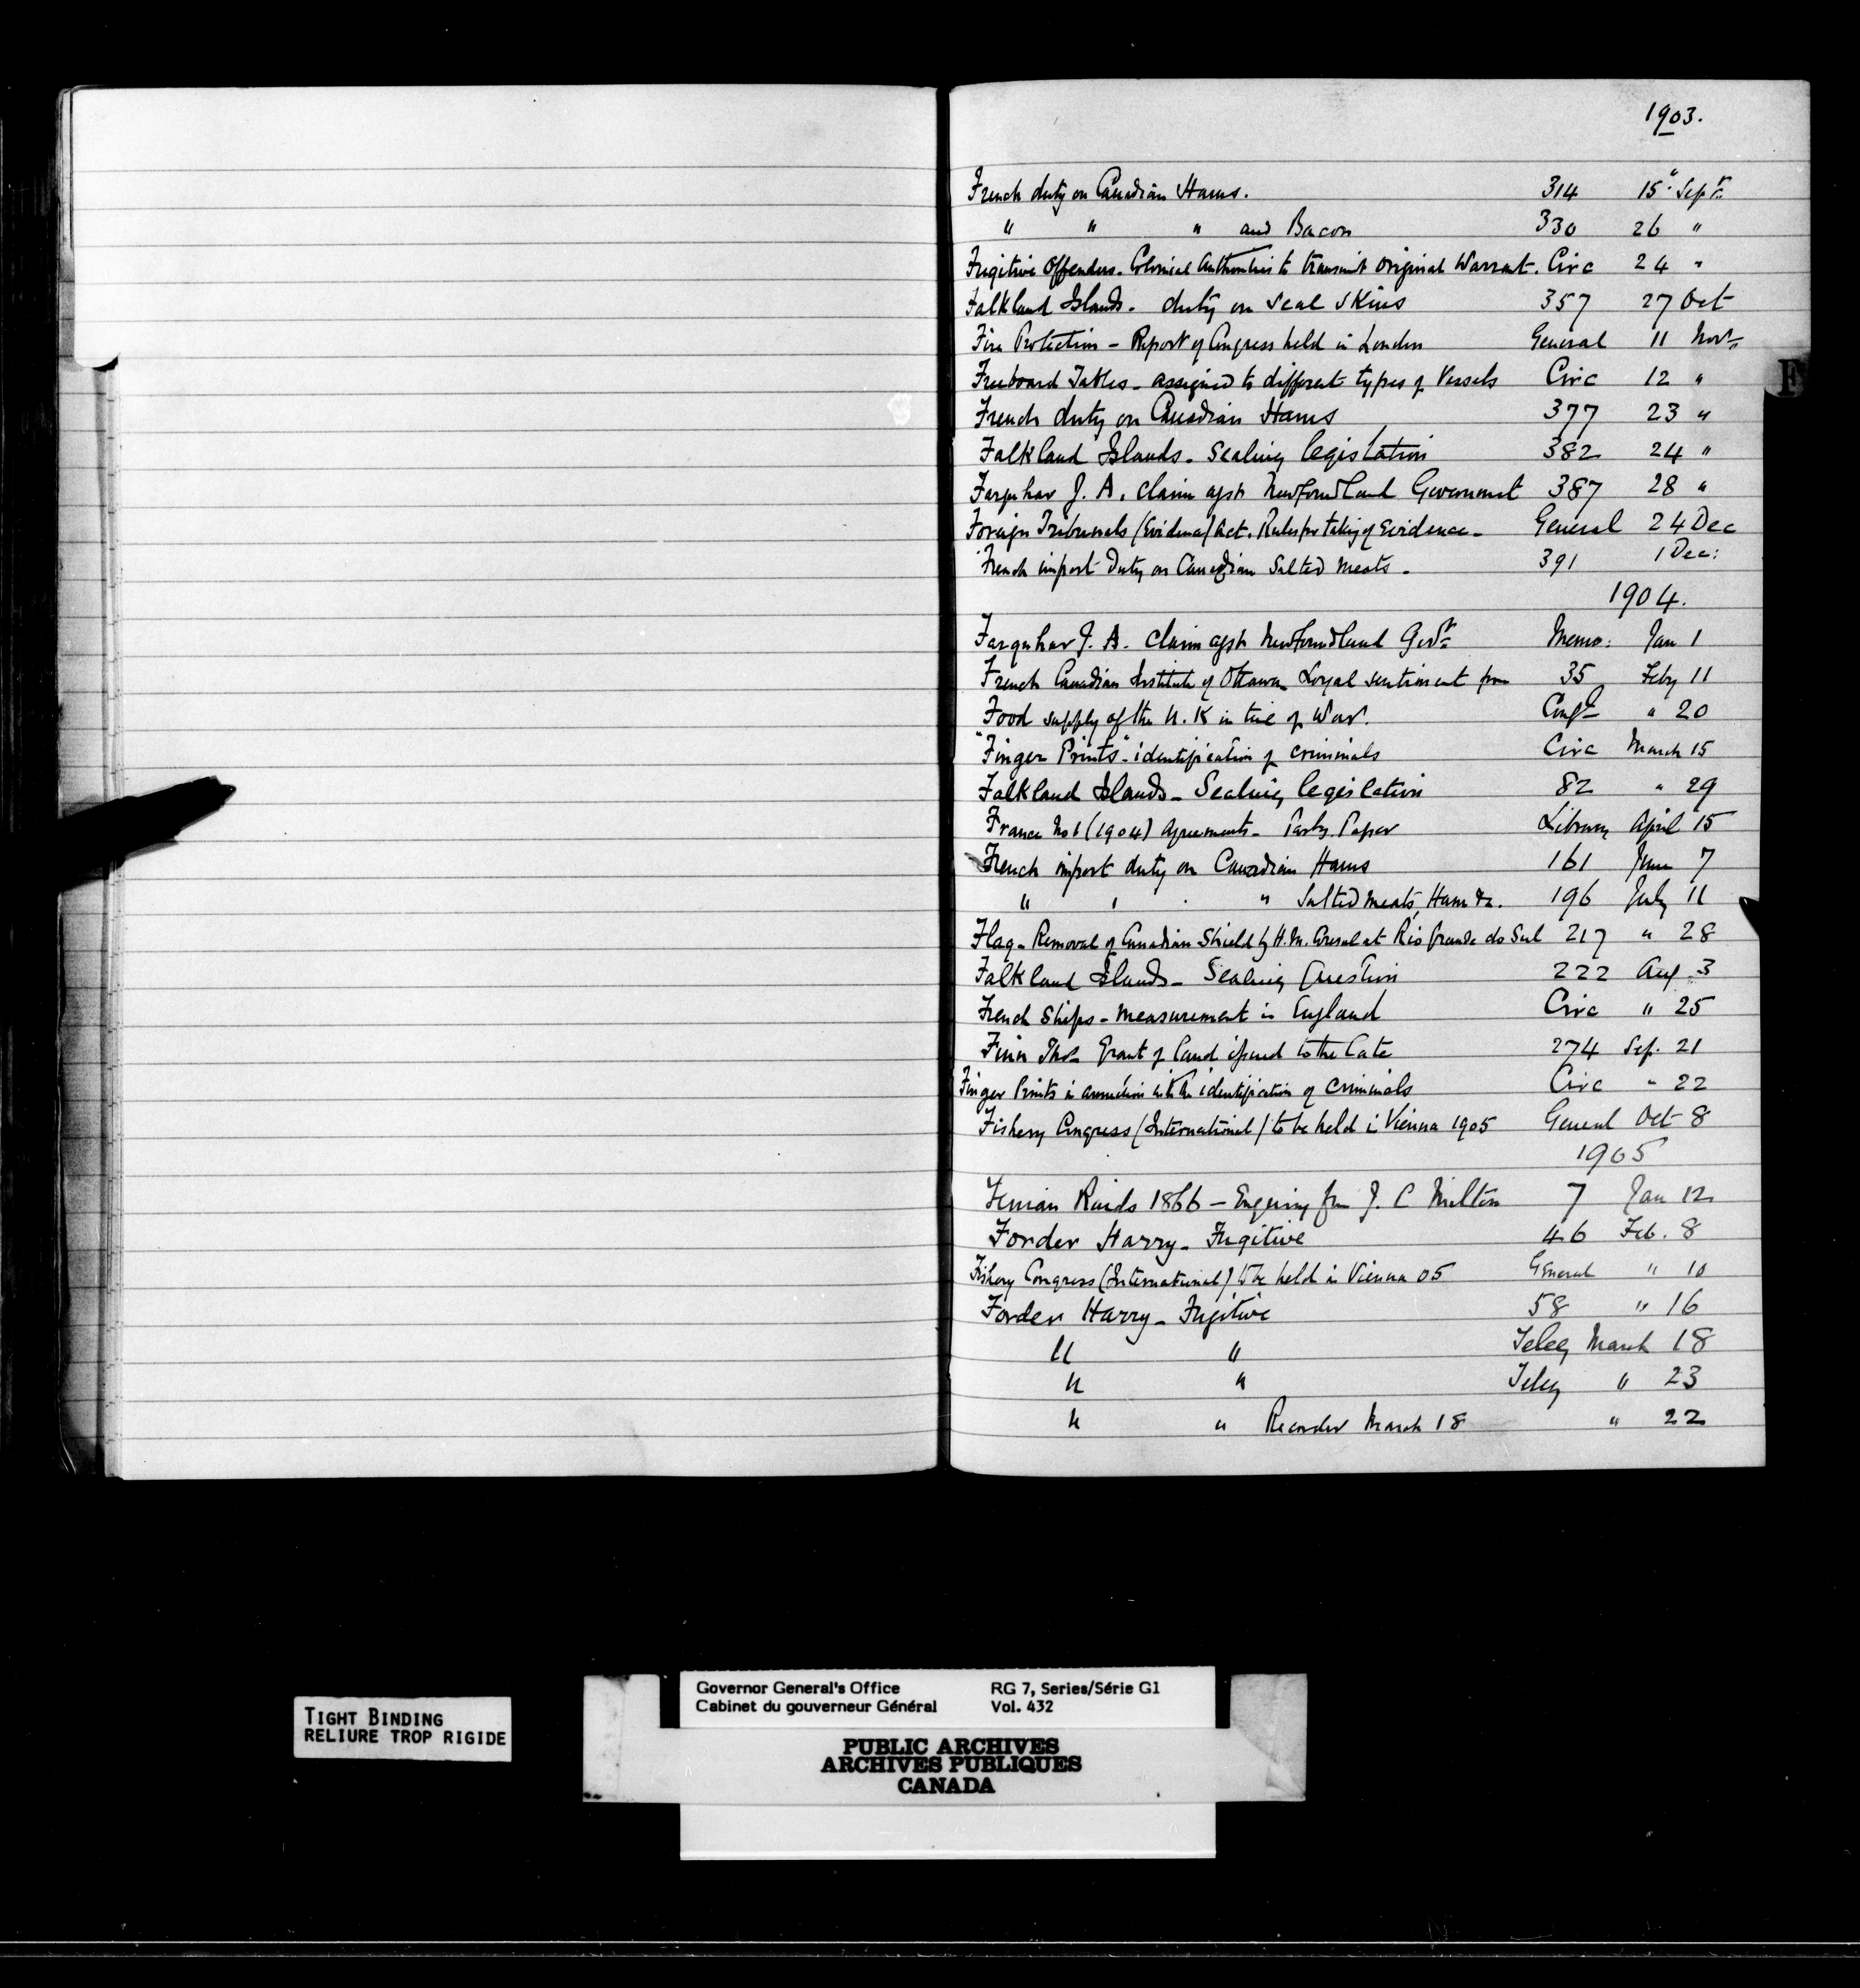 1903.
French duty on Canadian Hams. 314 15" Sept
" " " and Bacon 330 26 "
Fugitive Offenders. Colonial Authorities to transmit original Warrant. Circ 24 "
Falkland Islands. duty on Seal Skins 357 27 Oct
Fire Protection - Report of Congress held in London General 11 Novr
Freeboard Tables - assigned to different types of Vessels Circ 12 "
F
French duty on Canadian Hams 377 23 "
Falkland Islands. Sealing legislation 382 24 "
Farquhar J. A. claim agst Newfoundland Government 387 28 "
Foreign Tribunals (Evidence) Act. Rules for taking of Evidence - General 24 Dec
French import Duty on Canadian Salted Meats. 391 1 Dec:
1904.
Farquhar J. A. claim agst Newfoundland Govt Memo: Jan 1
French Canadian Institute of Ottawa Loyal sentiment from 35 Feby 11
Food supply of the U.K in time of War. Confl " 20
"Finger Prints" - identification of criminals Circ March 15
Falkland Islands - Sealing legislation 82 " 29
France No 1 (1904) Agreements - Parly. Paper Library April 15
French import duty on Canadian Hams 161 June 7
" " " " Salted meats, Ham &c. 196 July 11
Flag - Removal of Canadian Shield by H.M. Consul at Rio Grande do Sul 217 " 28
Falkland Islands - Sealing Question 222 Aug 3
French Ships - measurement in England Circ " 25
Finn Thos Grant of land issued to the late 274 Sep. 21
Finger Prints in connection with the identification of criminals Circ " 22
Fishery Congress (International) to be held in Vienna 1905 General Oct 8
1905
Fenian Raids 1866 - Enquiry from J. C Milton 7 Jan 12
Forder Harry - Fugitive 46 Feb. 8
Fishery Congress (International) to be held in Vienna 05 General " 10
Forder Harry - Fugitive 58 " 16
" " Teleg March 18
" " Teleg " 23
" " Recorder March 18 " 22
TIGHT BINDING
RELIURE TROP RIGIDE
Governor General's Office RG 7, Series/Série G1
Cabinet du gouverneur Général Vol. 432
PUBLIC ARCHIVES
ARCHIVES PUBLIQUES
CANADA